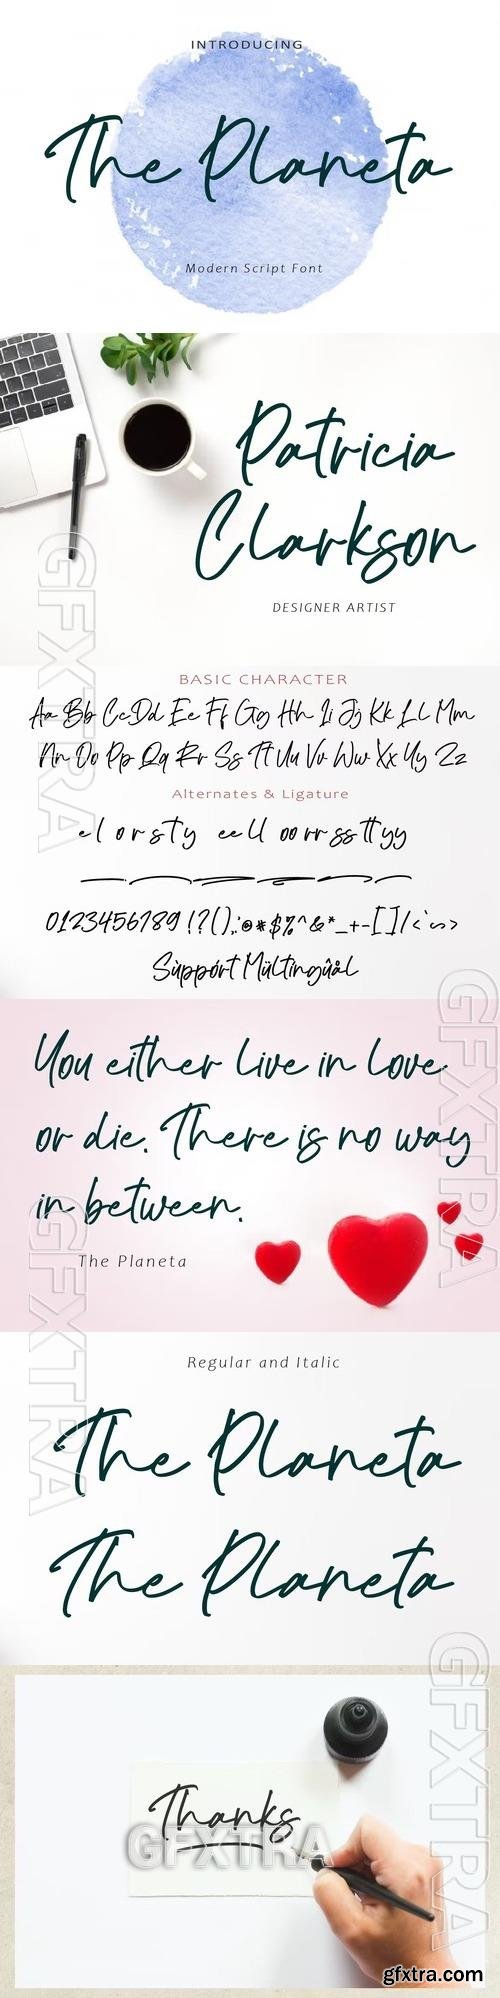 INTRODUCING
The Planeta
Modern Script Font
Patricia
Clarkson
DESIGNER ARTIST
GFXTRA
BASIC CHARACTER
Aa Bb Cc Dd Ee Ff Gg Hh Ii Jj Kk Ll Mm
Nn Oo Pp Qq Rr Ss Tt Uu Vv Ww Xx Yy Zz
Alternates & Ligature
e l o r s t y ee ll oo rr ss tt yy
0123456789 !?(),.:@*$%^&*_+-[]/<`~>
Sùppórt Mültingûål
GFXTRA
You either live in love
or die. There is no way
in between.
The Planeta
GFXTRA
Regular and Italic
The Planeta
The Planeta
GFXTRA
Thanks
GFXTRA
gfxtra.com